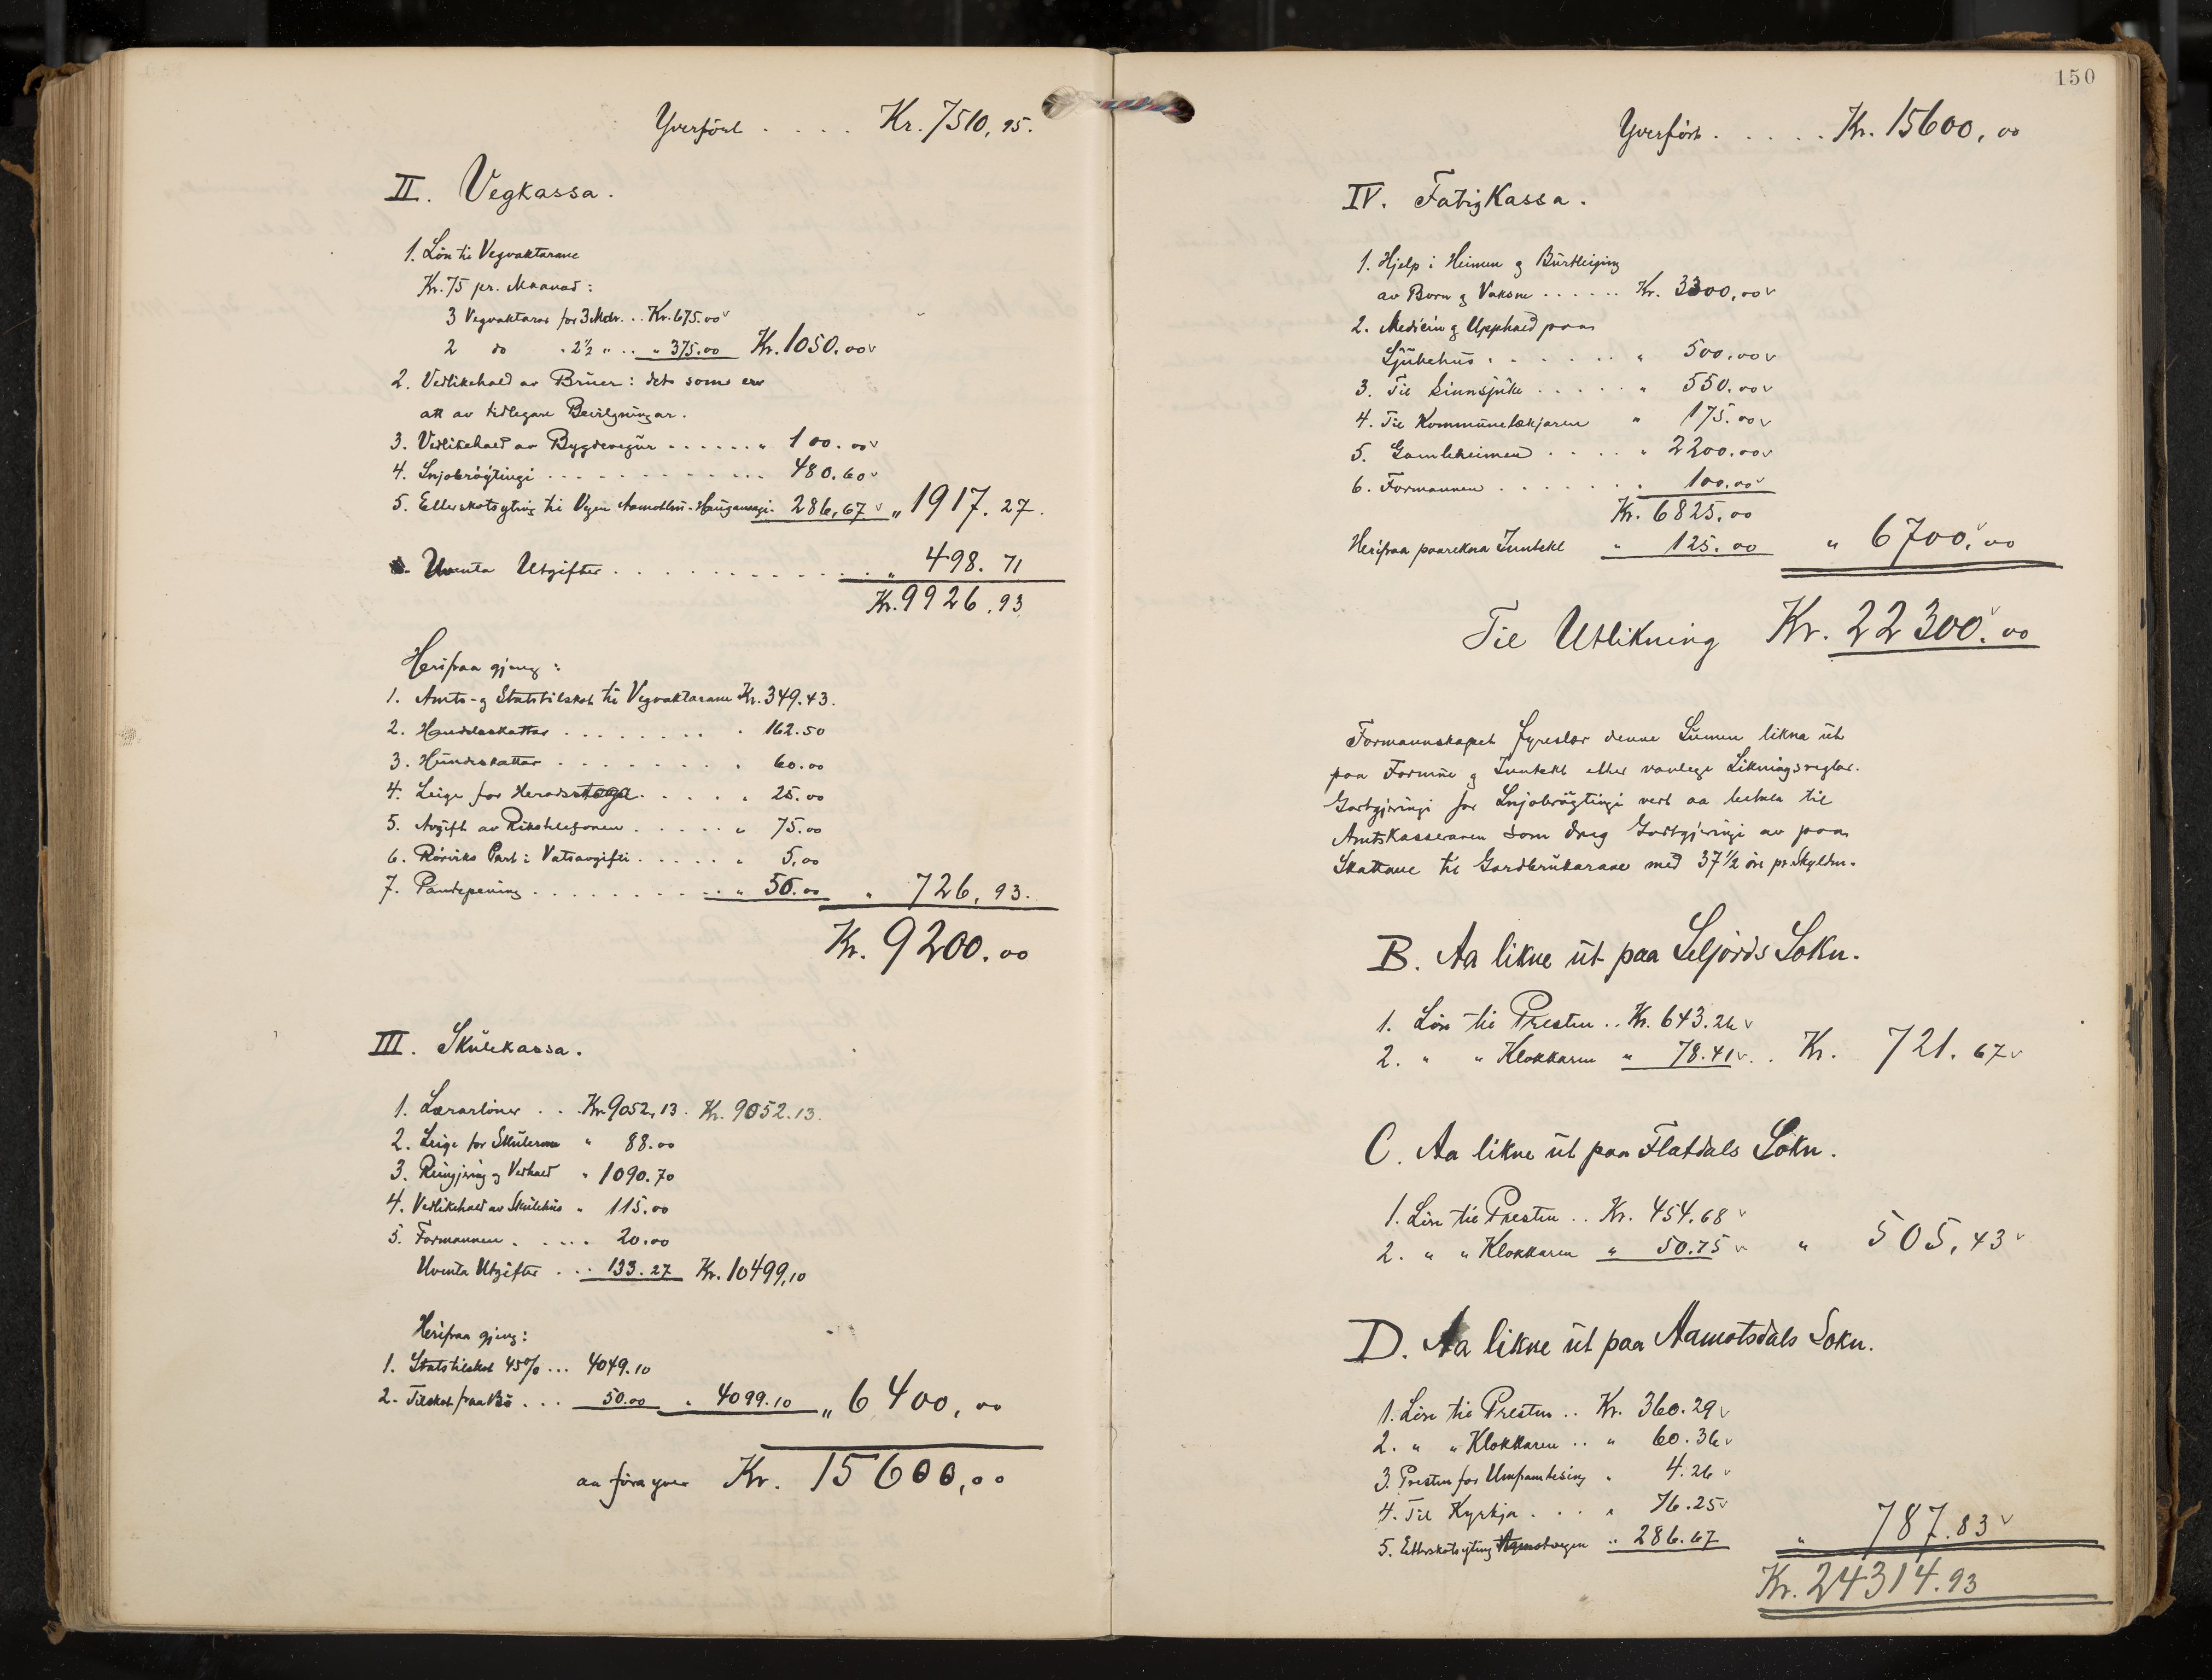 Yverført . . . . Kr. 7510,95.
II. Vegkassa.
1. Løn til Vegvaktarane
Kr. 75 pr. Maanad:
3 Vegvaktarar for 3 Mdr. . . Kr. 675.00
2 do " 2½ " . . " 375.00 Kr. 1050.00
2. Vedlikehald av Bruer: det som er
att av tidlegare Bevilgningar.
3. Vedlikehald av Bygdevegur . . . . . . " 100.00
4. Snjobrøytingi . . . . . . . . . . . . 480.60
5. Etterskotsyting til Vegen Aamotbru-Haugamogi. 286,67 " 1917.27.
Uventa Utgifter . . . . . . . . . . . . " 498.71
Kr. 9926,93
Herifraa gjeng:
1. Amts- og Statstilskot til Vegvaktarane Kr. 349.43.
2. Handelsskattar . . . . . . . . " 162.50
3. Hundeskattar . . . . . . . . . " 60.00
4. Leige for Heradsstoga . . . . . " 25.00
5. Avgift av Rikstelefonen . . . . . " 75.00
6. Rørviks Part i Vatsavgifti . . . . . " 5,00
7. Pantepening . . . . . . . . . . . " 50.00 " 726,93.
Kr. 9200.00
III. Skulekassa.
1. Lærarløner . . . Kr. 9052,13. Kr. 9052.13.
2. Leige for Skulerom " 88.00
3. Reingjering og Vedhald " 1090.70
4. Vedlikehald av Skulehus " 115.00
5. Formannen . . . . . 20.00
Uventa Utgifter . . . 133.27 Kr. 10499,10
Herifraa gjeng:
1. Statstilskot 45% . . . 4049.10
2. Tilskot fraa Bø . . . 50.00 " 4099.10 " 6400,00
aa føra yver Kr. 15600,00
150
Yverført . . . . . Kr. 15600,00
IV. FatigKassa.
1. Hjelp i Heimen og Burtleiging
av Born og Vaksne . . . . . . Kr. 3300,00
2. Medicin og Upphald paa
Sjukehus . . . . . . . " 500.00
3. Til Sinnsjuke . . . . . " 550.00
4. Til Kommunelækjaren " 175.00
5. Gamleheimen . . . . " 2200.00
6. Formannen . . . . . . . " 100.00
Kr. 6825.00
Herifraa paarekna Inntekt " 125.00 " 6700.00
Til Utlikning Kr. 22300.00
Formannskapet fyreslær denne Sumen likna ut
paa Formue og Inntekt etter vanlege Likningsreglar.
Godtgjeringi for Snjobrøytingi vert aa betala til
AmtsKasseraren som dreg Godtgjeringi av paa
Skattane til Gardbrukarane med 37½ øre pr. Skyldm.
B. Aa likne ut paa Seljords Sokn.
1. Løn til Presten . . Kr. 643.26
2. " " Klokkaren " 78.41 . . Kr. 721.67
C. Aa likne ut paa Flatdals Sokn.
1. Løn til Presten . . Kr. 454.68
2. " " Klokkaren " 50.75 " 505,43
D. Aa likne ut paa Aamotsdals Sokn.
1. Løn til Presten . . Kr. 360.29
2. " " Klokkaren . . " 60.36
3. Presten for " 4.26
4. Til Kyrkja . . . " 76.25
5. Etterskotsyting Aamotvegen " 286.67 " 787.83
Kr. 24314.93